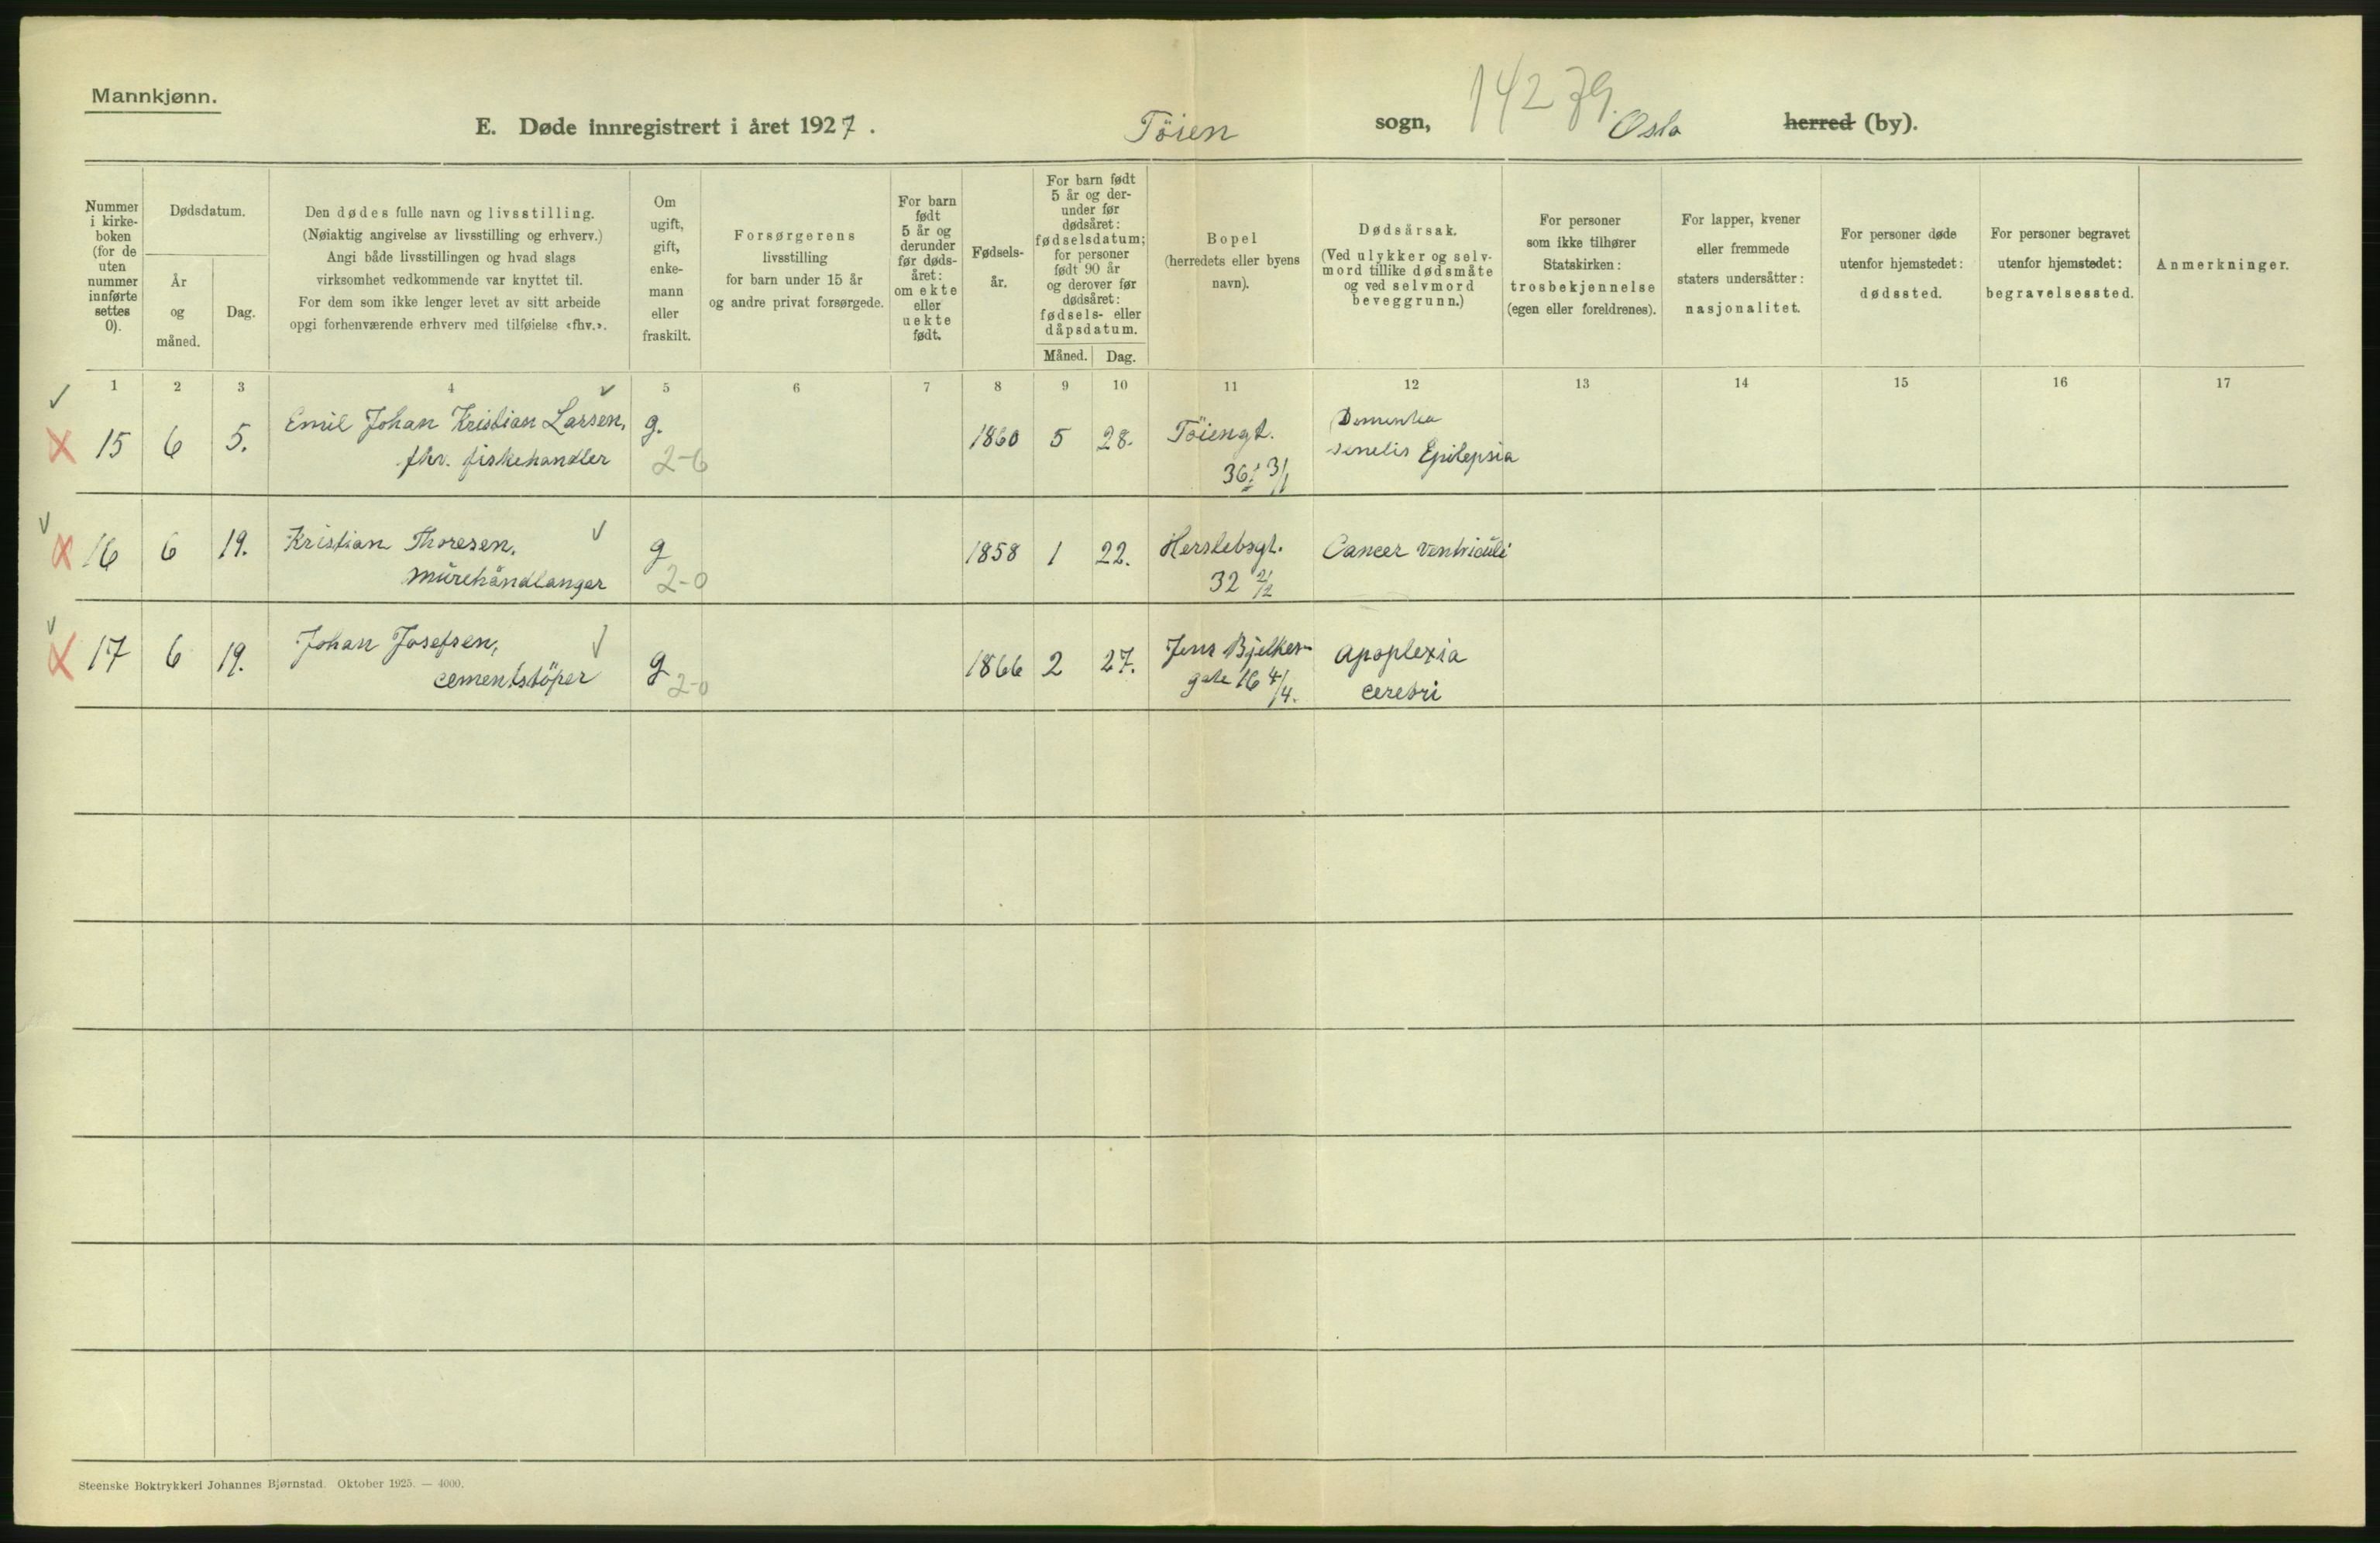 Mannkjønn.
14279.
E. Døde innregistrert i året 1927. Töien sogn, Oslo herred (by).
Nummer i kirke-boken (for de uten nummer innførte settes 0).
Dødsdatum.
År og måned.
Dag.
Den dødes fulle navn og livsstilling.
(Nøiaktig angivelse av livsstilling og erhverv.)
Angi både livsstillingen og hvad slags
virksomhet vedkommende var knyttet til.
For dem som ikke lenger levet av sitt arbeide
opgi forhenværende erhverv med tilføielse «fhv.».
Om ugift, gift, enke-mann eller fraskilt.
Forsørgerens
livsstilling
for barn under 15 år
og andre privat forsørgede.
For barn født 5 år og derunder før døds-året: om ekte eller uekte født.
Fødsels-år.
For barn født 5 år og der-under før dødsåret: fødselsdatum; for personer født 90 år og derover før dødsåret: fødsels- eller dåpsdatum.
Måned. Dag.
Bopel
(herredets eller byens
navn).
Dødsårsak.
(Ved ulykker og selv-
mord tillike dødsmåte
og ved selvmord
beveggrunn.)
For personer
som ikke tilhører
Statskirken:
trosbekjennelse
(egen eller foreldrenes).
For lapper, kvener
eller fremmede
staters undersåtter:
nasjonalitet.
For personer døde
utenfor hjemstedet:
dødssted.
For personer begravet
utenfor hjemstedet:
begravelsessted.
Anmerkninger.
1 2 3 4 5 6 7 8 9 10 11 12 13 14 15 16 17
15 6 5. Emil Johan Kristian Larsen, g. 1860 5 28. Töiengt. Dementia
fhv. fiskehandler 2-6 36 3/1 senelis Epilepsia
16 6 19. Kristian Thoresen, g 1858 1 22. Herslebsgt. Cancer ventriculi
murehåndlanger 2-0 32 2/2
17 6 19. Johan Josefsen, g 1866 2 27. Jens Bjelkes- Apoplexia
cementstöper 2-0 gate 16 4/4. cerebri
Steenske Boktrykkeri Johannes Bjørnstad. Oktober 1925. — 4000.